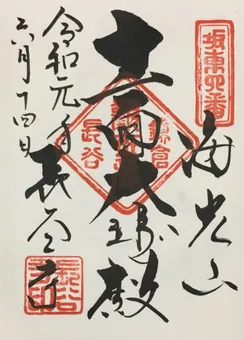 坂東四番
海光山
十一面大悲殿
鎌倉
長谷
令和元年
六月十四日
長谷寺